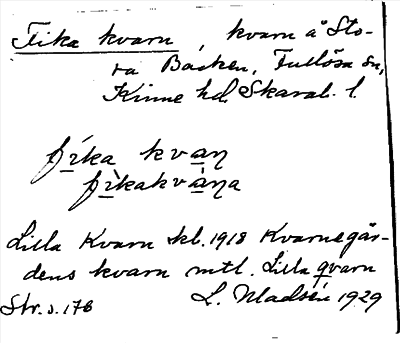 Fika kvarn, kvarn å Sto-
ra Backen, Fullösa sn,
Kinne hd. Skarab. l.
fika kvaṉ
fìkakvàṉa
Lilla Kvarn skl. 1918 Kvarnegår-
dens kvarn mtl. Lilla qvarn
Str. s. 176
L. Madsén 1929